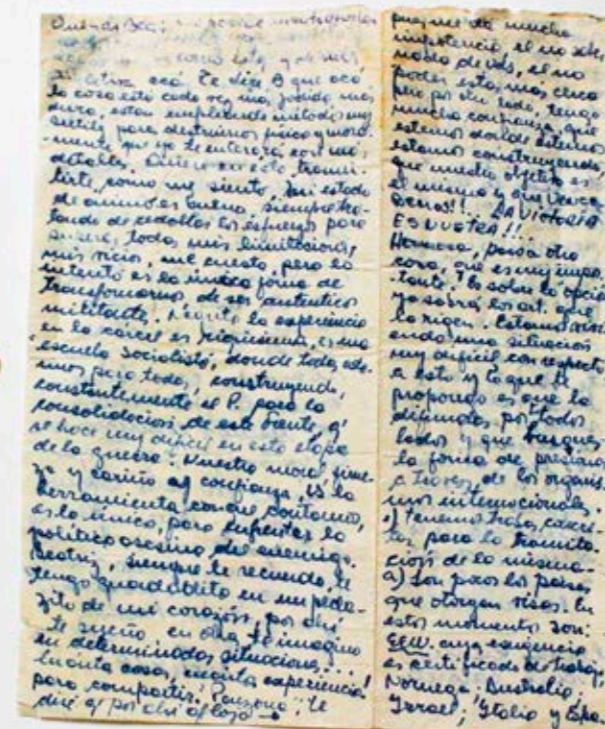 Querida Bea:
como esta, y a su vez,
acá. Te dije B que acá
la cosa está cada vez más jodida, más
dura, están empleando métodos muy
sutiles para destruirnos física y moral-
mente que ya te enterarás con más
detalles. Quiero en esto transmi-
tirte, como me siento. Mi estado
de animo es bueno, siempre tra-
tando de redoblar los esfuerzos para
superar, todas mis limitaciones,
mis vicios, me cuesta, pero lo
intento es la única forma de
transformarnos, de ser autenticos
militantes. Negrita la experiencia
en la cárcel es riquísima, es una
escuela socialista, donde todos
para todos, construyendo,
constantemente el P. para la
consolidación de este frente, q'
se hace muy difícil en esta etapa
de la guerra. Nuestra moral, firme-
za y cariño y confianza, es la
herramienta con que contamos,
es la única, para enfrentar la
política asesina del enemigo.
Beatriz, siempre te recuerdo, te
tengo guardadita en un peda-
zito de mi corazón, por ahí
te sueño te imagino
en determinadas situaciones...!
cuanta cosa, cuanta experiencia
para compartir!
dije q' por ahí aflojo →
pues me da mucha
impotencia, el no saber
nada de uds, el no
poder estar más cerca
pero por otro lado, tengo
mucha confianza, que
estemos donde estemos
estamos construyendo,
que nuestro objetivo es
el mismo y que Vence
remos!!... LA VICTORIA
ES NUESTRA!!.
Hermana, paso a otra
cosa, que es muy impor
tante. Es sobre la opción
ya sabrá los art. que
la rigen. Estamos vivi
endo una situación
muy dificil con respecto
a esto y lo que te
propongo es que la
difundas por todos
lados y que busques
la forma de presionar
a traves de los organis
mos internacionales.
Tenemos trabas concre-
tas para la tramita-
ción de la misma-
a) Son pocos los paises
que otorgan visas. En
estos momentos son:
EEUU. cuya exigencia
es certificado de trabajo,
Noruega. Australia.
Israel; Italia y Espa.